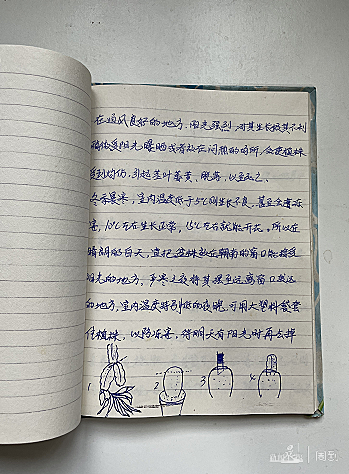 在通风良好的地方。阳光强烈，对其生长极其不利
的植株受阳光曝晒或者放在闷热的场所，会使植株
受到灼伤，引起茎叶萎黄、脱落，以至死亡。
冬季寒冷，室内温度低于5℃则生长不良，甚至会遭冻
害，10℃左右生长正常，15℃左右就能开花。所以在
晴朗的白天，宜把盆栽放在朝南的窗口能接受
阳光的地方，严寒之夜将其移至远离窗口较近
的地方，室内温度特别低的夜晚，可用大塑料袋套
住植株，以防冻害，待明天有阳光时再去掉
1. 2. 3 4.